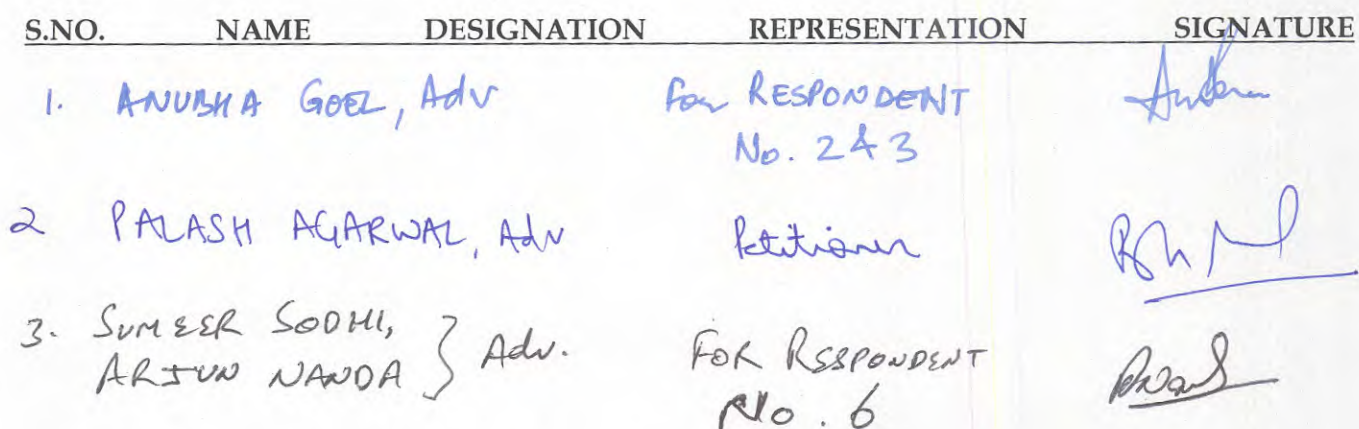 S.NO. NAME DESIGNATION REPRESENTATION SIGNATURE
1. ANUBHA GOEL, Adv For RESPONDENT
No. 2 & 3
2 PALASH AGARWAL, Adv Petitioner
3. SUMEER SODHI, } Adv. FOR RESPONDENT
ARJUN NANDA No. 6